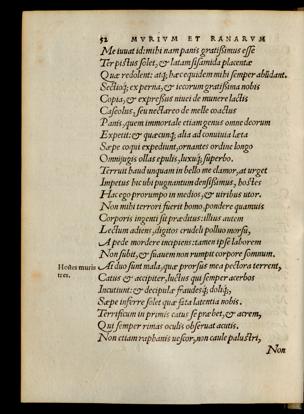 52 MVRIVM ET RANARVM
Me iuuat id: mihi nam panis gratißimus esse
Ter pistus solet, & latam sisamida placentæ
Quæ redolent: atq; hæc equidem mihi semper abũdant.
Sectioq; ex perna, & iecorum gratißima nobis
Copia, & expreßus niuei de munere lactis
Caseolus, seu nectareo de melle coactus
Panis, quem immortale etiam genus omne deorum
Expetit: & quæcunq; alia ad conuiuia læta
Sæpe coqui expediunt, ornantes ordine longo
Omnijugis ollas epulis, luxuq; superbo.
Terruit haud unquam in bello me clamor, at urget
Impetus hic ubi pugnantum densißimus, hostes
Hac ego prorumpo in medios, & uiribus utor.
Non mihi terrori fuerit homo, pondere quamuis
Corporis ingenti sit præditus: illius autem
Lectum adiens, digitos crudeli polluo morsu,
A pede mordere incipiens: tamen ipse laborem
Non subit, & suauem non rumpit corpore somnum.
Hostes muris tres.
At duo sunt mala, quæ prorsus mea pectora terrent,
Catus & accipiter, luctus qui semper acerbos
Incutiunt: & decipulæ fraudesq; doliq;,
Sæpe inferre solet quæ fata latentia nobis.
Terrificum in primis catus se præbet, & acrem,
Qui semper rimas oculis obseruat acutis.
Non etiam raphanis uescor, non caule palustri,
Non